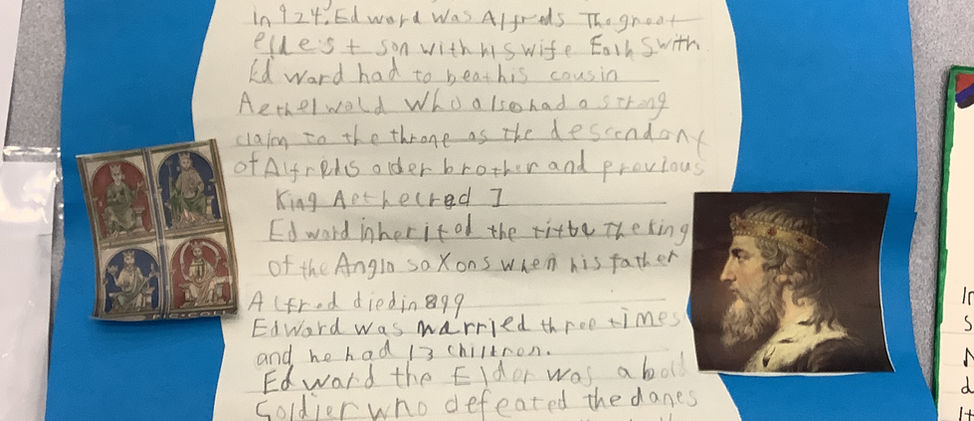 In 924. Edward was Alfreds The great
eldest son with his wife Ealhswith
Edward had to beat his cousin
Aethelwold who also had a strong
claim to the throne as the descendant
of Alfreds older brother and previous
King Aethelred I
Edward inherited the title The king
of the Anglo saxons when his father
Alfred died in 899
Edward was married three times
and he had 13 children.
Edward the Elder was a bold
Soldier who defeated the danes